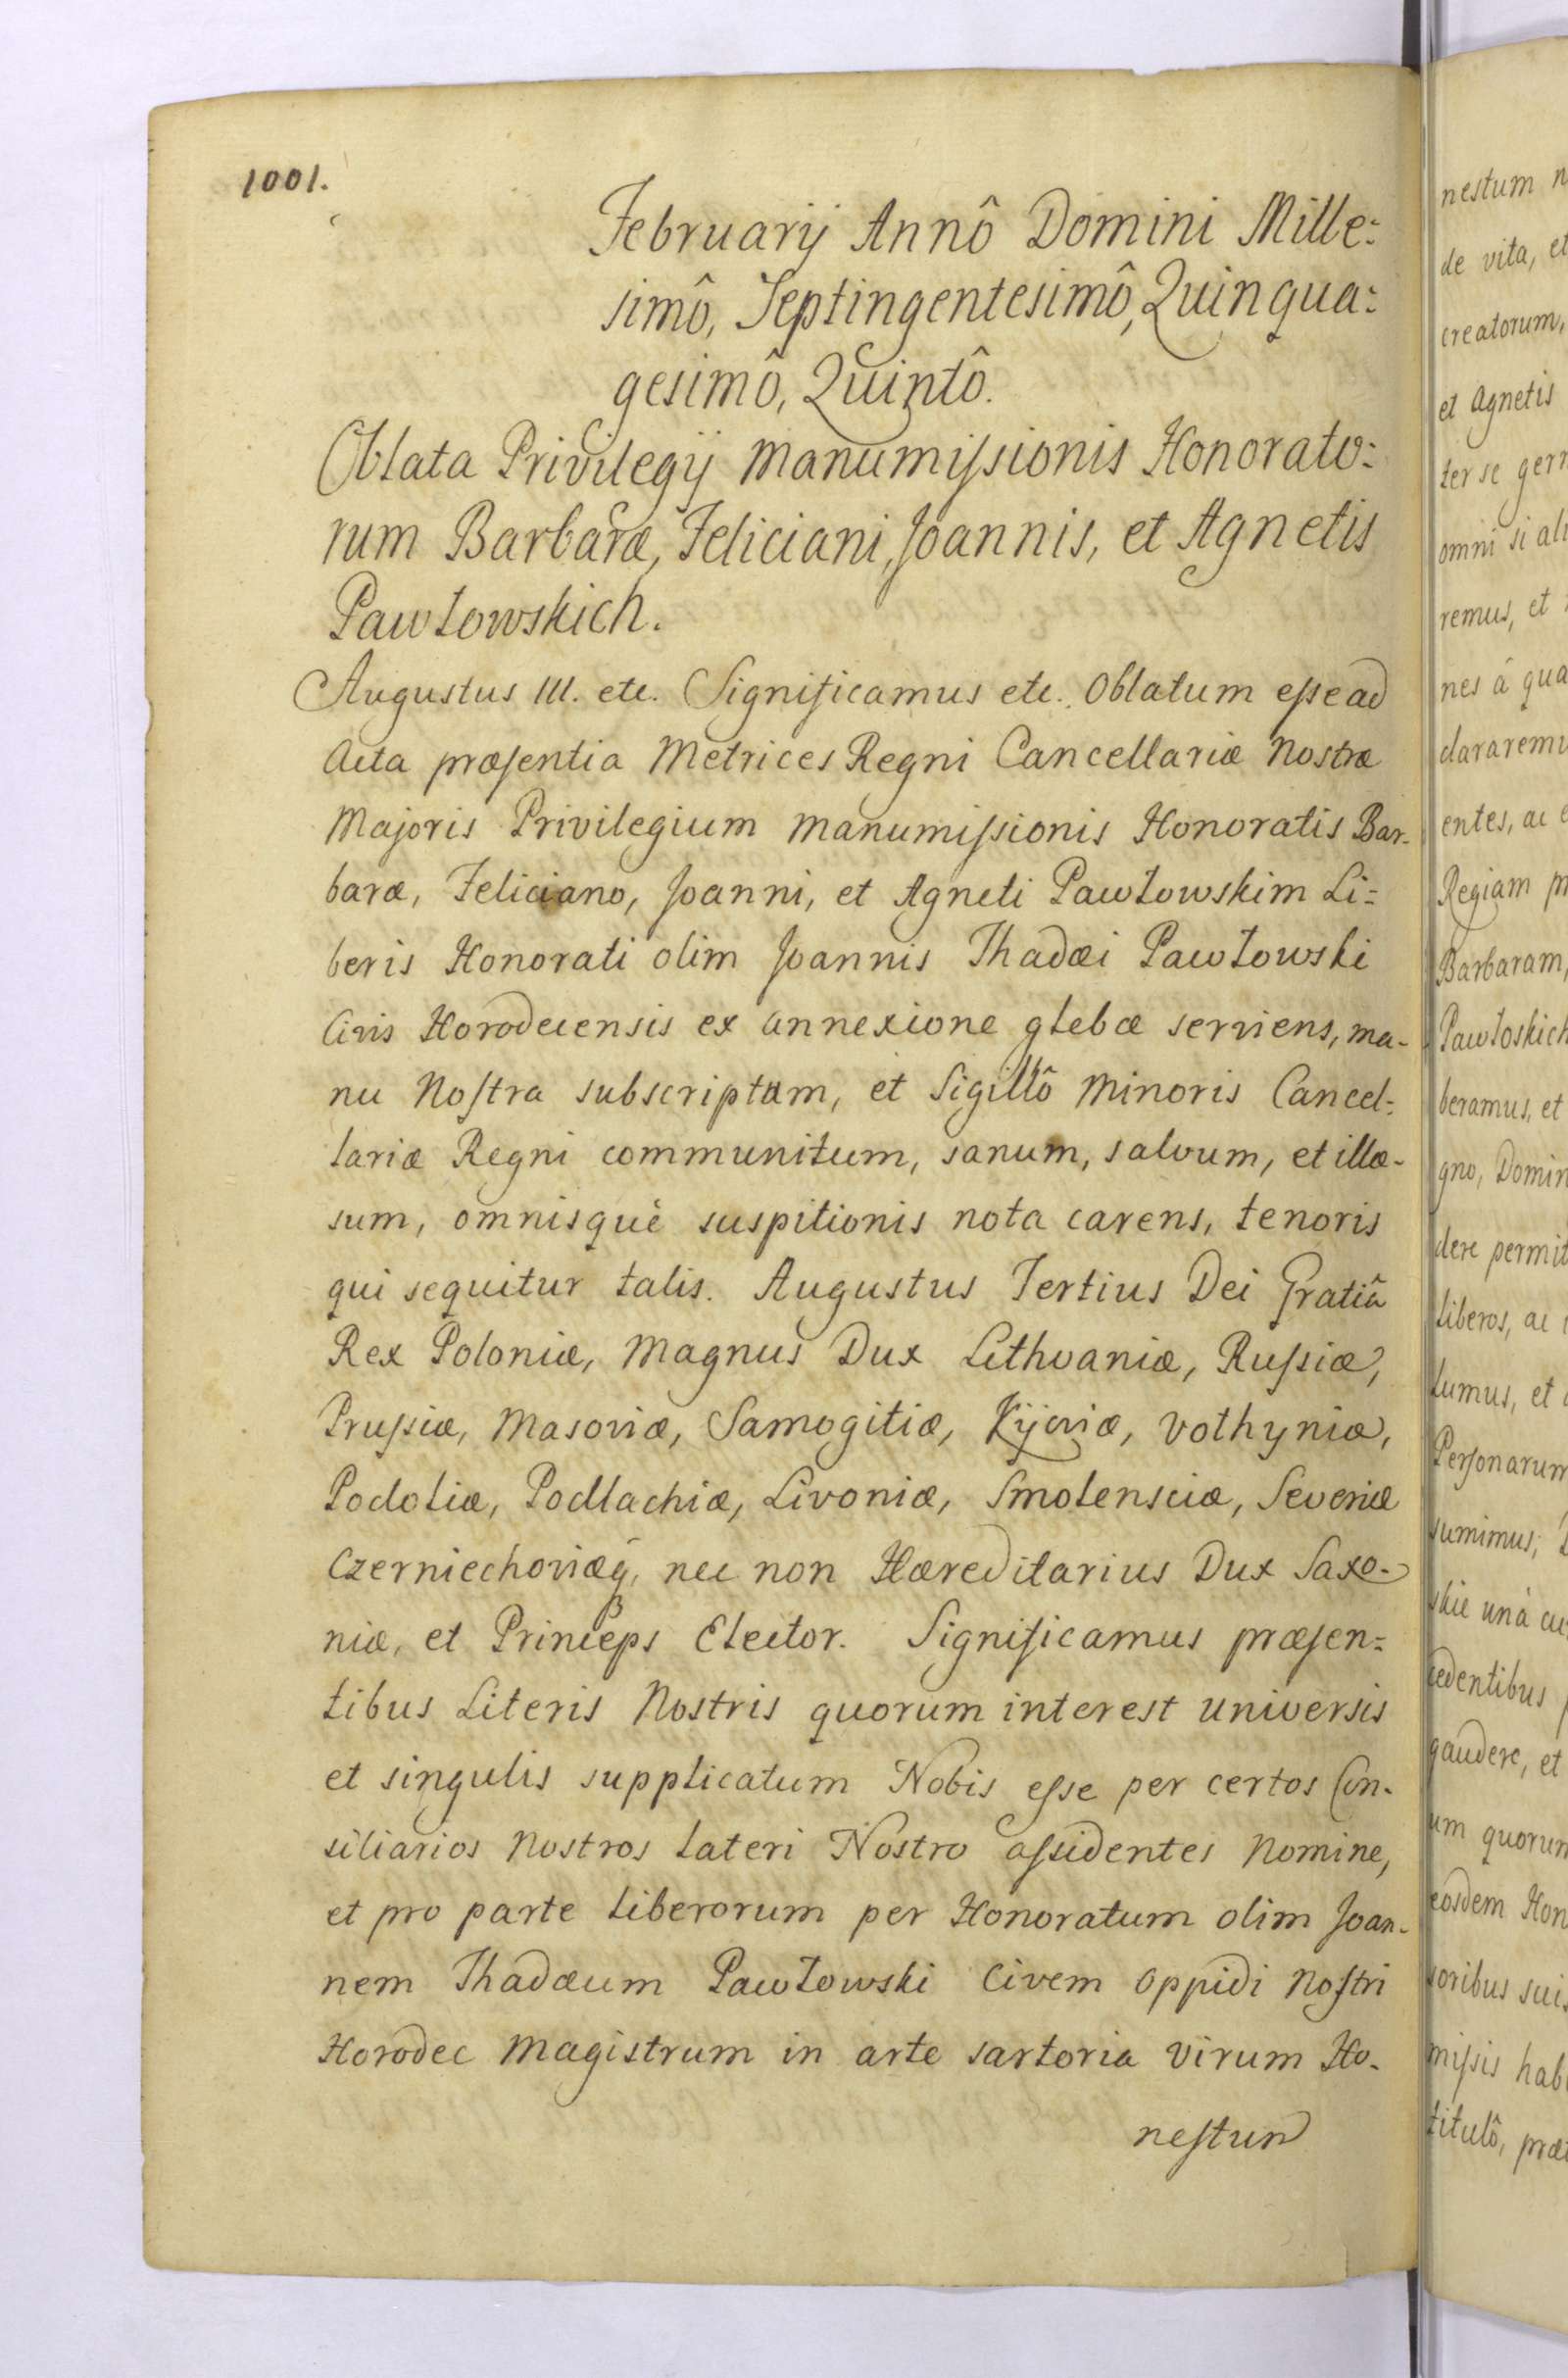 1001.
Februarij Annô Domini Mille:
simô, Septingentesimô, Quinqua:
gesimô, Quintô.
Oblata Privilegij Manumissionis Honorato:
rum Barbaræ, Feliciani, Joannis, et Agnetis
Pawłowskich.
Augustus III. etc. Significamus etc. Oblatum esse ad
Acta præsentia Metrices Regni Cancellariæ Nostræ
Majoris Privilegium Manumissionis Honoratis Bar-
baræ, Feliciano, Joanni, et Agneti Pawłowskim Li=
beris Honorati olim Joannis Thadæi Pawłowski
Civis Horodecensis ex annexione glebæ serviens, ma-
nu Nostra subscriptum, et Sigillô Minoris Cancel=
lariæ Regni communitum, sanum, salvum, et illæ-
sum, omnisquè suspitionis nota carens, tenoris
qui sequitur talis. Augustus Tertius Dei Gratiâ
Rex Poloniæ, Magnus Dux Lithvaniæ, Russiæ,
Prussiæ, Masoviæ, Samogitiæ, Kijoviæ, Volhyniæ,
Podoliæ, Podlachiæ, Livoniæ, Smolensciæ, Severiæ
Czerniechoviæq, nec non Hæreditarius Dux Saxo-
niæ, et Princeps Elector. Significamus præsen=
tibus Literis Nostris quorum interest universis
et singulis supplicatum Nobis esse per certos Con-
siliarios Nostros lateri Nostro assidentes Nomine,
et pro parte liberorum per Honoratum olim Joan-
nem Thadæum Pawłowski Civem Oppidi Nostri
Horodec Magistrum in arte sartoria virum Ho-
nestum
nestum n
de vita, et
creatorum,
et Agnetis
ter se ger
omni si ali
remus, et
nes á qua
clararemu
entes, ac e
Regiam
Barbaram,
Pawłoskich
beramus, et
gno, Domin
dere permit
Liberos, ac
lumus, et
Personarum
sumimus;
skie unà cu
cedentibus
gaudere, et
um quorum
eosdem Hon
soribus suis
missis hab
titulô, præ